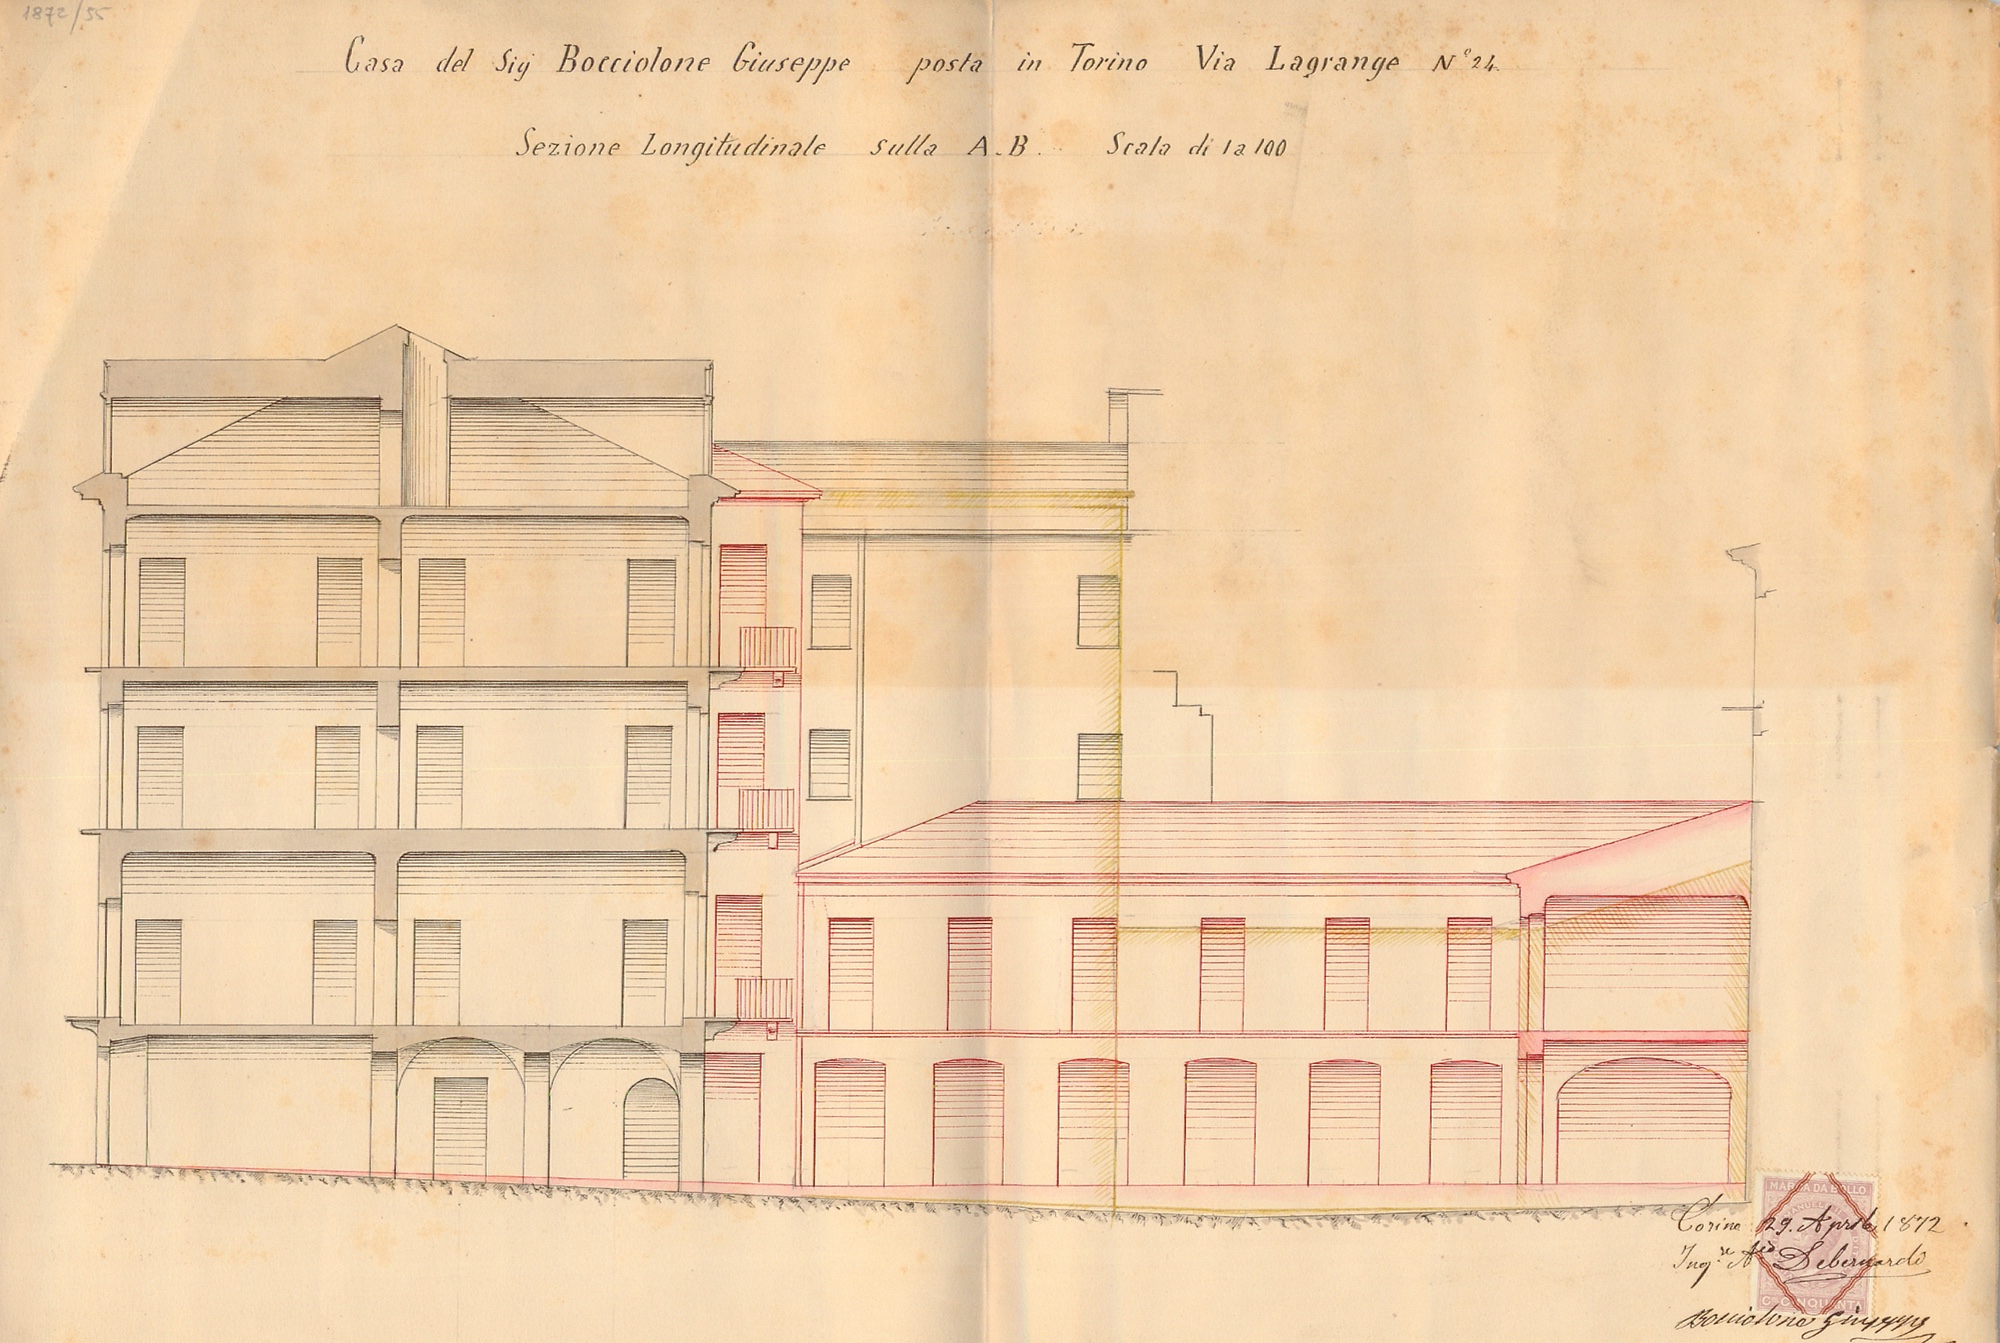 1872/55
Casa del Sig Bocciolone Giuseppe posta in Torino Via Lagrange N° 24.
Sezione Longitudinale sulla A.B. Scala di 1 a 100
MARCA DA BOLLO
Torino 29. Aprile 1872
Ing.re Debernardi
CINQUANTA
Bocciolone Giuseppe